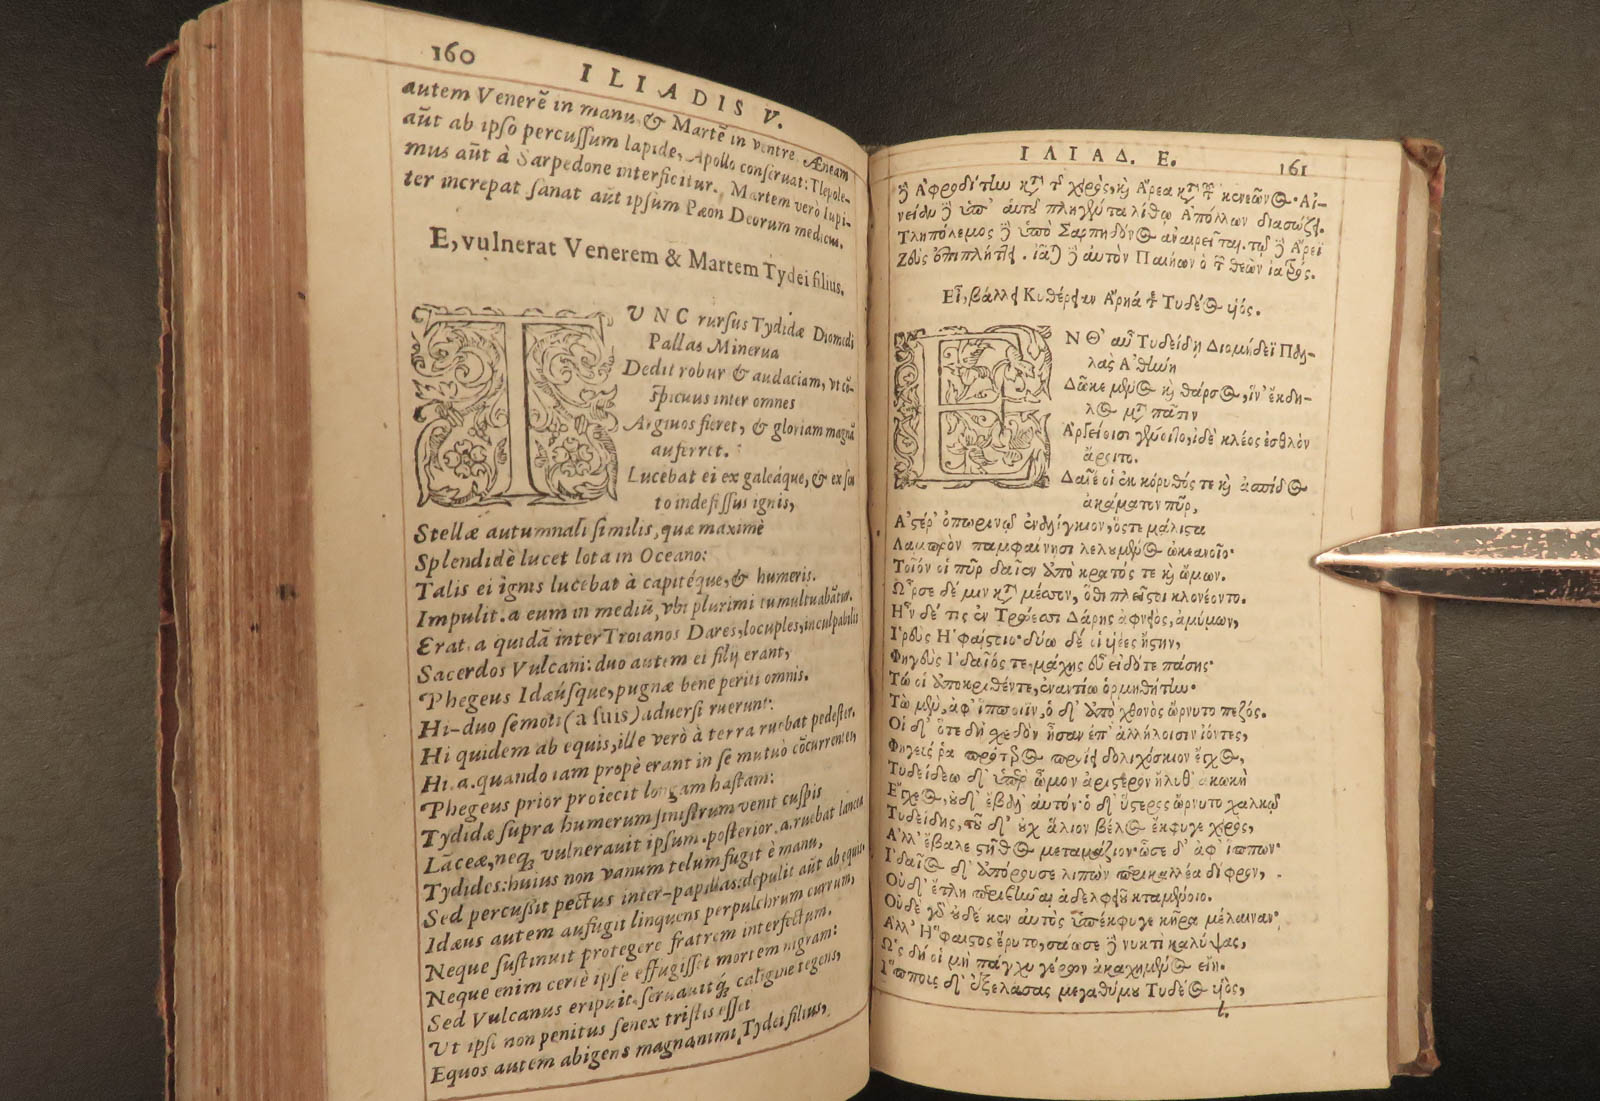 160
ILIADIS V.
autem Venerē in manu, & Martē in ventre. Æneam
aūt ab ipso percussum lapide, Apollo conseruat: Tlepole-
mus aūt à Sarpedone interficitur. Martem verò Iupi-
ter increpat sanat aūt ipsum Pæon Deorum medicus.
E, vulnerat Venerem & Martem Tydei filius.
TVNC rursus Tydidæ Diomedi
Pallas Minerua
Dedit robur & audaciam, vt cō-
spicuus inter omnes
Argiuos fieret, & gloriam magnā
auferret.
Lucebat ei ex galeáque, & ex scu
to indefissus ignis,
Stellæ autumnali similis, quæ maximè
Splendidè lucet lota in Oceano:
Talis ei ignis lucebat à capitéque, & humeris.
Impulit .a eum in mediū, vbi plurimi tumultuabātur.
Erat .a quidā inter Troianos Dares, locuples, inculpabilis
Sacerdos Vulcani: duo autem ei filij erant,
Phegeus Idæúsque, pugnæ bene periti omnis.
Hi-duo semoti (a suis) aduersi ruerunt:
Hi quidem ab equis, ille verò à terra ruebat pedester.
Hi .a. quando iam propè erant in se mutuò cōcurrentes,
Phegeus prior proiecit longam hastam:
Tydidæ supra humerum sinistrum venit cuspis
Lāceæ, neq; vulnerauit ipsum. posterior .a. ruebat lancea
Tydides: huius non vanum telum fugit è manu,
Sed percussit pectus inter-papillas: depulit aūt ab equis.
Idæus autem aufugit linquens perpulchrum currum,
Neque sustinuit protegere fratrem interfectum.
Neque enim certè ipse effugisset mortem nigram:
Sed Vulcanus eripuit. seruauitq; caligine tegens,
Vt ipsi non penitus senex tristis esset
Equos autem abigens magnanimi Tydei filius,
ΙΛΙΑΔ. Ε.
161
ἢ Ἀφροδίτην κατὰ τ χειρὸς, καὶ Ἄρεα κατὰ τ κενεῶνος. Αἰ-
νείαν ἢ ὑπ' αὐτοῦ πληγέντα λίθῳ Ἀπόλλων διασώζει.
Τληπόλεμος ἢ ὑπὸ Σαρπηδόνος ἀναιρεῖται. τῷ ἢ Ἄρεϊ
Ζεὺς ἐπιπλήττει. ἰᾶται ἢ αὐτὸν Παιήων ὁ τ θεῶν ἰατρός.
Εἶ, βάλλει Κυθέρειαν Ἄρηά τε Τυδέος υἱός.
ΕΝΘ' αὖ Τυδείδῃ Διομήδεϊ Παλ-
λὰς Ἀθήνη
Δῶκε μένος καὶ θάρσος, ἵν' ἔκδη-
λος μετὰ πᾶσιν
Ἀργείοισι γένοιτο, ἰδὲ κλέος ἐσθλὸν
ἄροιτο.
Δαῖέ οἱ ἐκ κόρυθός τε καὶ ἀσπίδος
ἀκάματον πῦρ,
Ἀστέρ' ὀπωρινῷ ἐναλίγκιον, ὅστε μάλιστα
Λαμπρὸν παμφαίνησι λελουμένος ὠκεανοῖο·
Τοῖόν οἱ πῦρ δαῖεν ἀπὸ κρατός τε καὶ ὤμων.
Ὦρσε δέ μιν κατὰ μέσσον, ὅθι πλεῖστοι κλονέοντο.
Ἦν δέ τις ἐν Τρώεσσι Δάρης ἀφνειός, ἀμύμων,
Ἱρεὺς Ἡφαίστοιο· δύω δέ οἱ υἱέες ἤστην,
Φηγεὺς Ἰδαῖός τε, μάχης εὖ εἰδότε πάσης·
Τώ οἱ ἀποκρινθέντε, ἐναντίω ὁρμηθήτην·
Τὼ μὲν, ἀφ' ἵπποιϊν, ὁ δ' ἀπὸ χθονὸς ὤρνυτο πεζός.
Οἱ δ' ὅτε δὴ σχεδὸν ἦσαν ἐπ' ἀλλήλοισιν ἰόντες,
Φηγεύς ῥα πρότερος προΐει δολιχόσκιον ἔγχος,
Τυδείδεω δ' ὑπὲρ ὦμον ἀριστερὸν ἤλυθ' ἀκωκὴ
Ἔγχεος, οὐδ' ἔβαλ' αὐτόν· ὁ δ' ὕστερος ὤρνυτο χαλκῷ
Τυδείδης, τοῦ δ' οὐχ ἅλιον βέλος ἔκφυγε χειρός,
Ἀλλ' ἔβαλε στῆθος μεταμάζιον· ὦσε δ' ἀφ' ἵππων·
Ἰδαῖος δ' ἀπόρουσε λιπὼν περικαλλέα δίφρον,
Οὐδ' ἔτλη περιβῆναι ἀδελφειοῦ κταμένοιο.
Οὐδὲ γὰρ οὐδέ κεν αὐτὸς ὑπέκφυγε κῆρα μέλαιναν·
Ἀλλ' Ἥφαιστος ἔρυτο, σάωσε ἢ νυκτὶ καλύψας,
Ὡς δή οἱ μὴ πάγχυ γέρων ἀκαχήμενος εἴη.
Ἵππους δ' ἐξελάσας μεγαθύμου Τυδέος υἱός,
l.